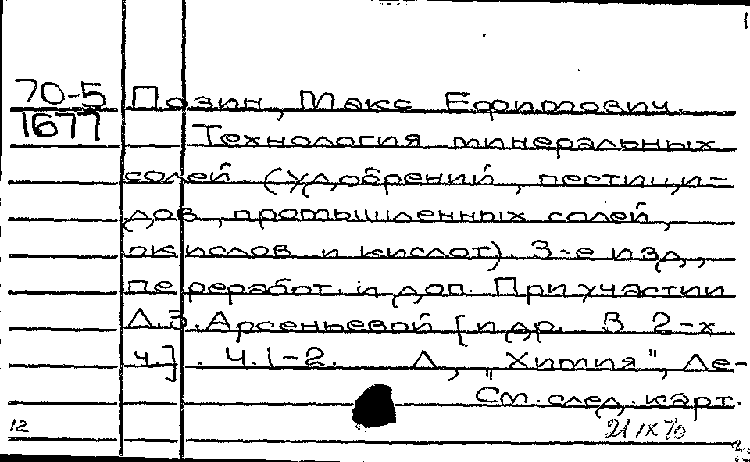 70-5 Позин, Макс Ефимович.
1677 Технология минеральных
солей (удобрений, пестици-
дов, промышленных солей,
окислов и кислот). 3-е изд.,
переработ. и доп. При участии
Л.З.Арсеньевой [и др. В 2-х
ч.]. Ч.1-2. Л., "Химия", Ле-
См. след. карт.
12 21 IX 70